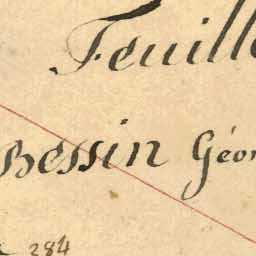 Feuill
Bessin Géor
284